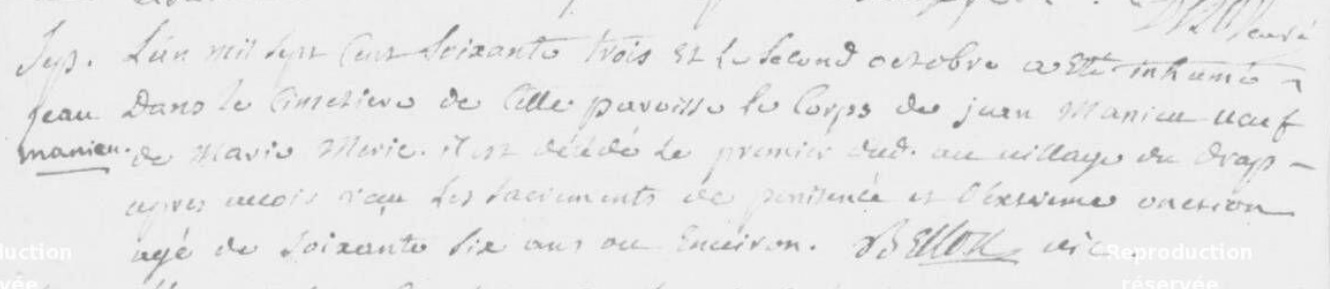 curé
Sep. L'an mil sept cent soixante trois et le second octobre a été inhumé
jean Dans le Cimetiere de Cette paroisse le Corps de jean Manieu veuf
manieu. de Marie Meric. il est décédé le premier dud. au village du drap
apres avoir reçu les sacrements de penitence et l'extreme onction
agé de soixante six ans ou Environ. Bellon vic
©Reproduction
réservée